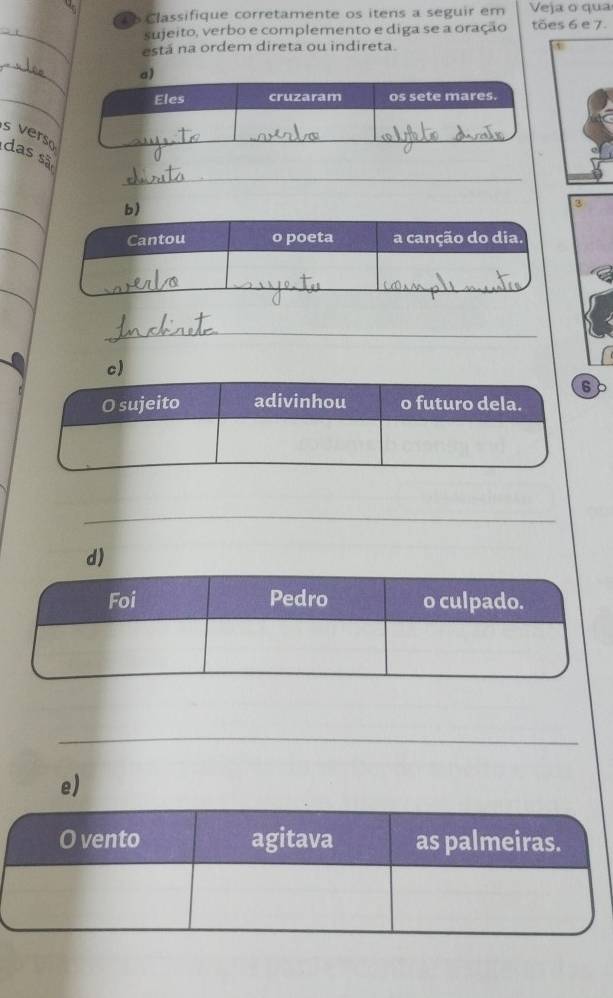 Classifique corretamente os itens a seguir em
sujeito, verbo e complemento e diga se a oração
está na ordem direta ou indireta.
Veja o qua
tões 6 e 7.
s verso
das sã
a)
Eles cruzaram os sete mares.
sujeito verbo objeto direto
direta
b)
Cantou o poeta a canção do dia.
verbo sujeito complemento
Indireta
c)
O sujeito adivinhou o futuro dela.
d)
Foi Pedro o culpado.
e)
O vento agitava as palmeiras.
1
3
6